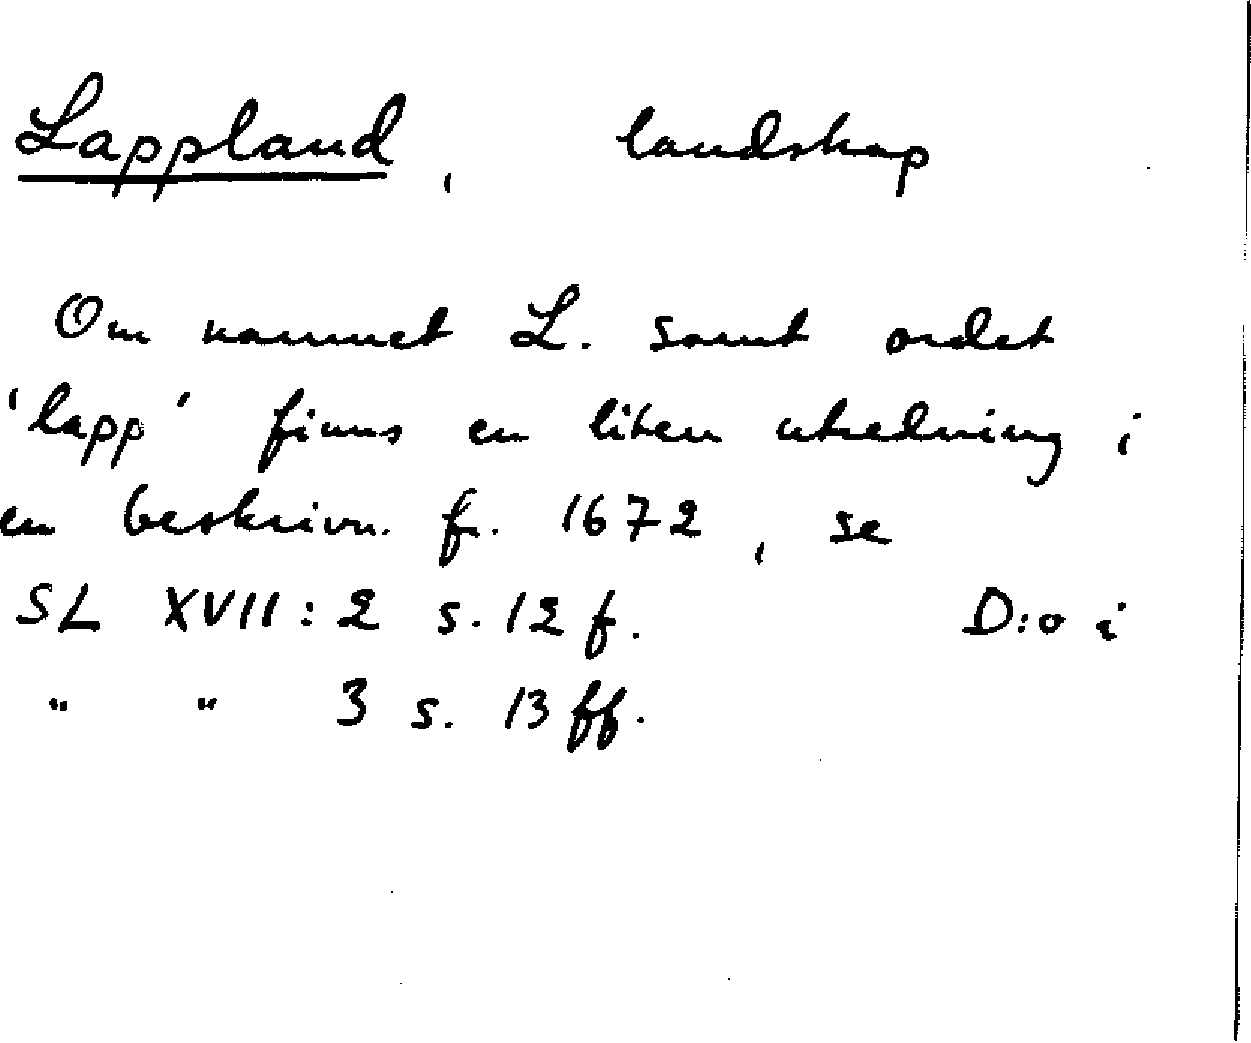 Lappland, landskap
Om namnet L. samt ordet
'lapp' finns en liten utredning i
en beskrivn. fr. 1672, se
SL XVII: 2 s. 12 f. D:o i
" " 3 s. 13 ff.